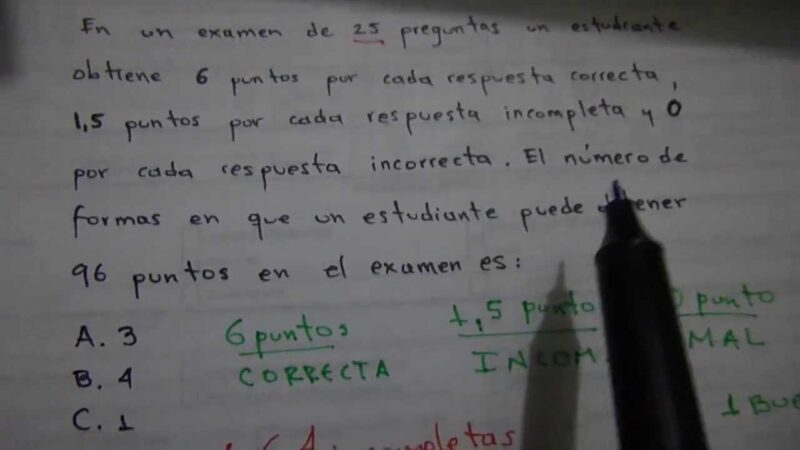 En un examen de 25 preguntas un estudiante
obtiene 6 puntos por cada respuesta correcta,
1,5 puntos por cada respuesta incompleta y 0
por cada respuesta incorrecta. El número de
formas en que un estudiante puede
96 puntos en el examen es:
A. 3
6 puntos
1,5 punto
punto
CORRECTA
MAL
B. 4
C. 1
1